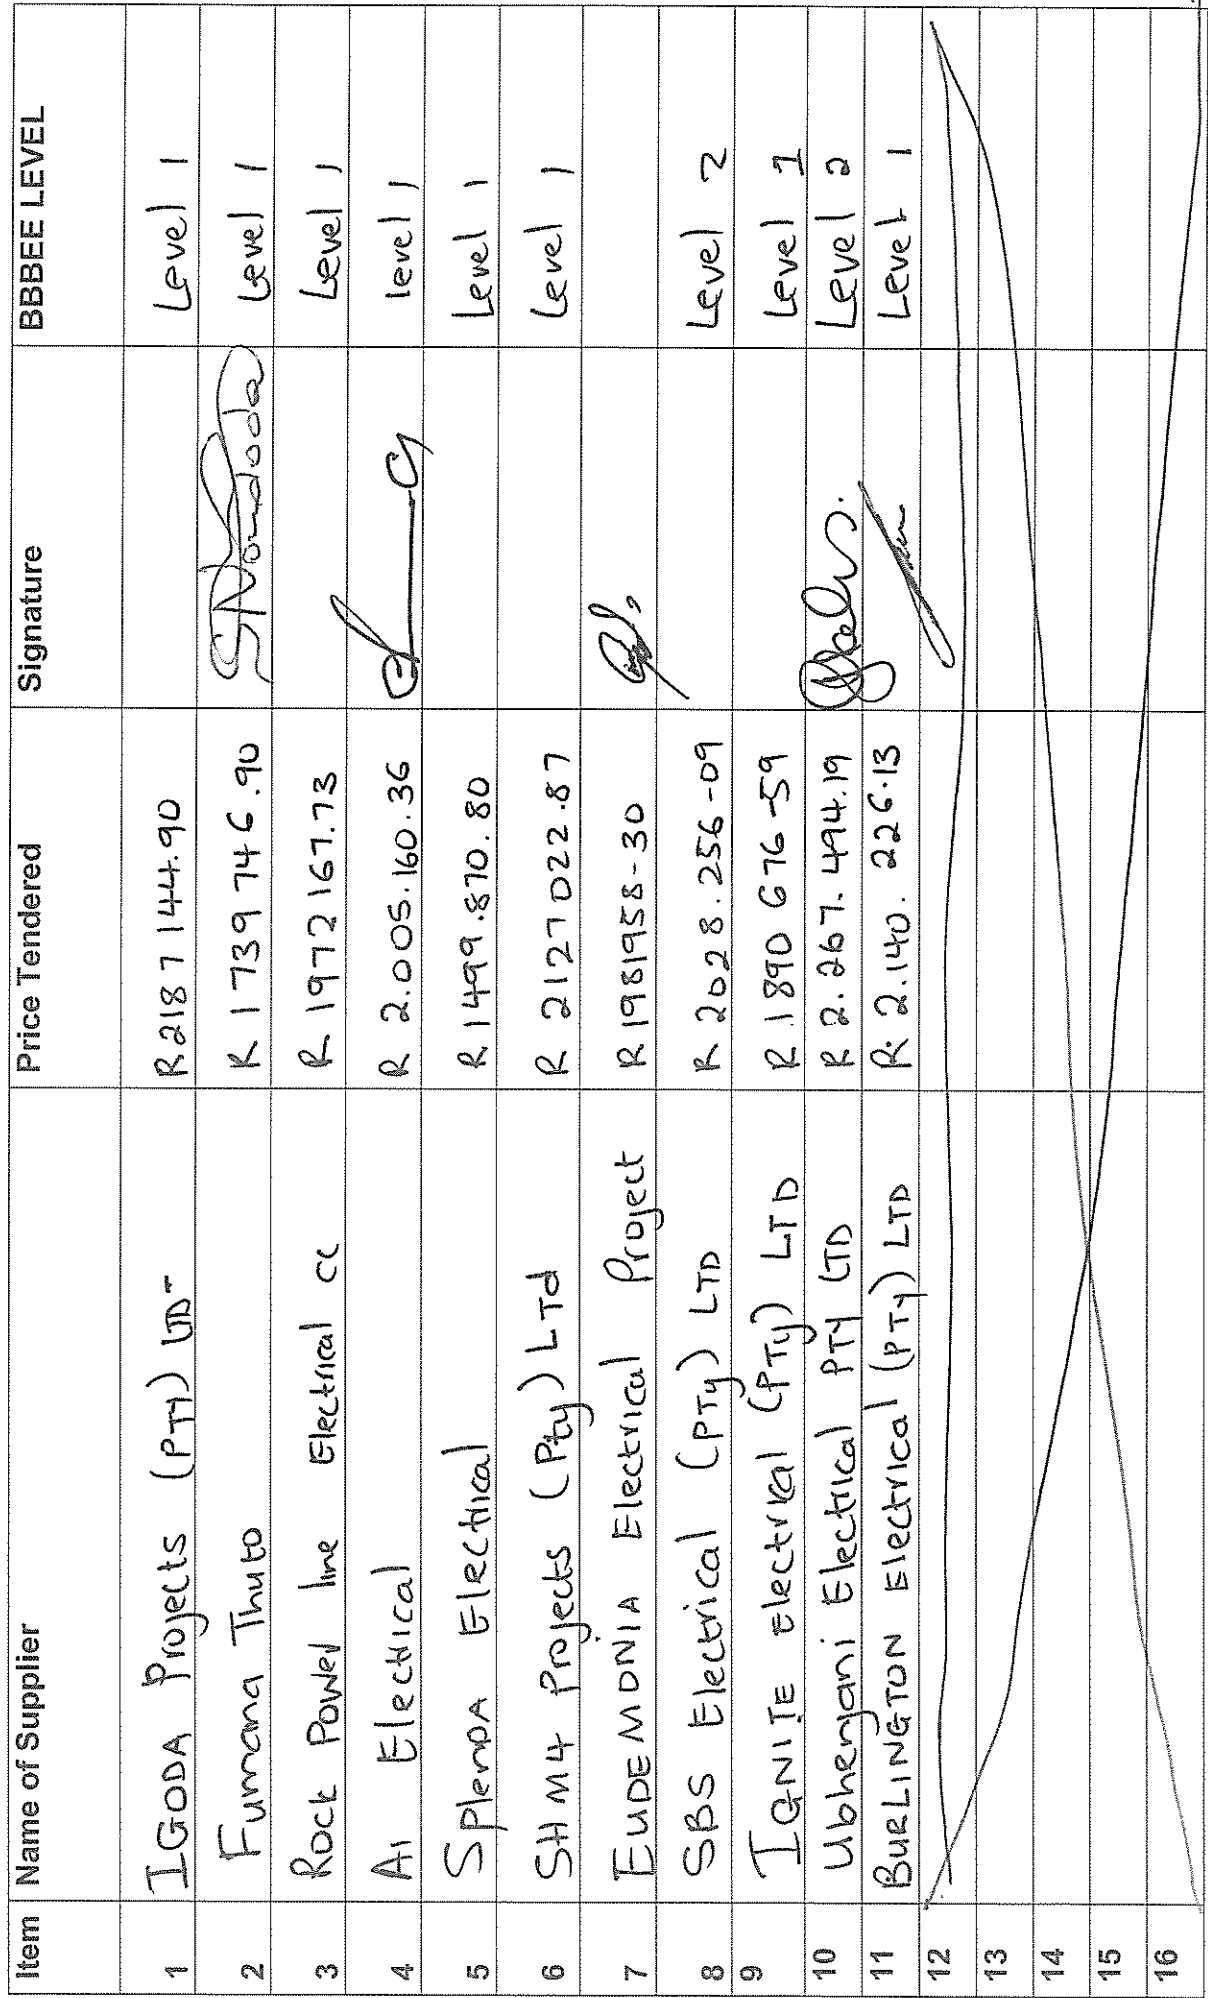 Item Name of Supplier Price Tendered Signature BBBEE LEVEL
1 IGODA Projects (PTY) LTD- R2187144.90 Level 1
2 Fumana Thuto R 1739 746.90 SNomdoda Level 1
3 Rock Power line Electrical cc R 1972167.73 Level 1
4 A1 Electrical R 2.005.160.36 level 1
5 SplenDA Electrical R.1499.870.80 Level 1
6 SHM4 Projects (Pty) LTd R 2127022.87 Level 1
7 EUDEMONIA Electrical Project R 1981958-30
8 SBS Electrical (PTy) LTD R 2028.256-09 Level 2
9 IGNITE Electrical (PTy) LTD R.1890676-59 Level 1
10 Ubhenjani Electrical PTY LTD R 2.267.494.19 Level 2
11 BURLINGTON Electrical (PTy) LTD R. 2.140. 226.13 Level 1
12
13
14
15
16